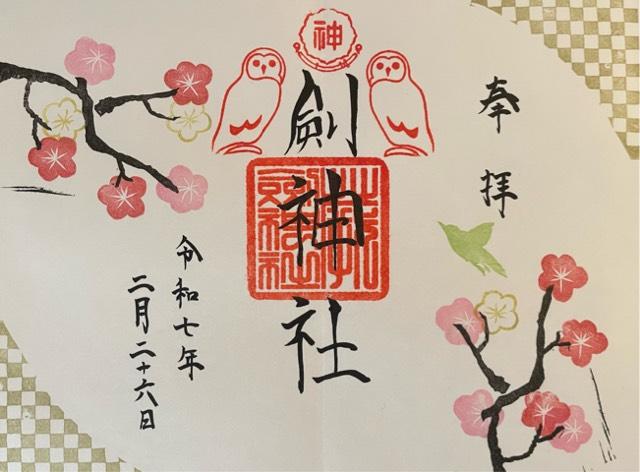 奉拝
神
剣神社
令和七年
二月二十六日